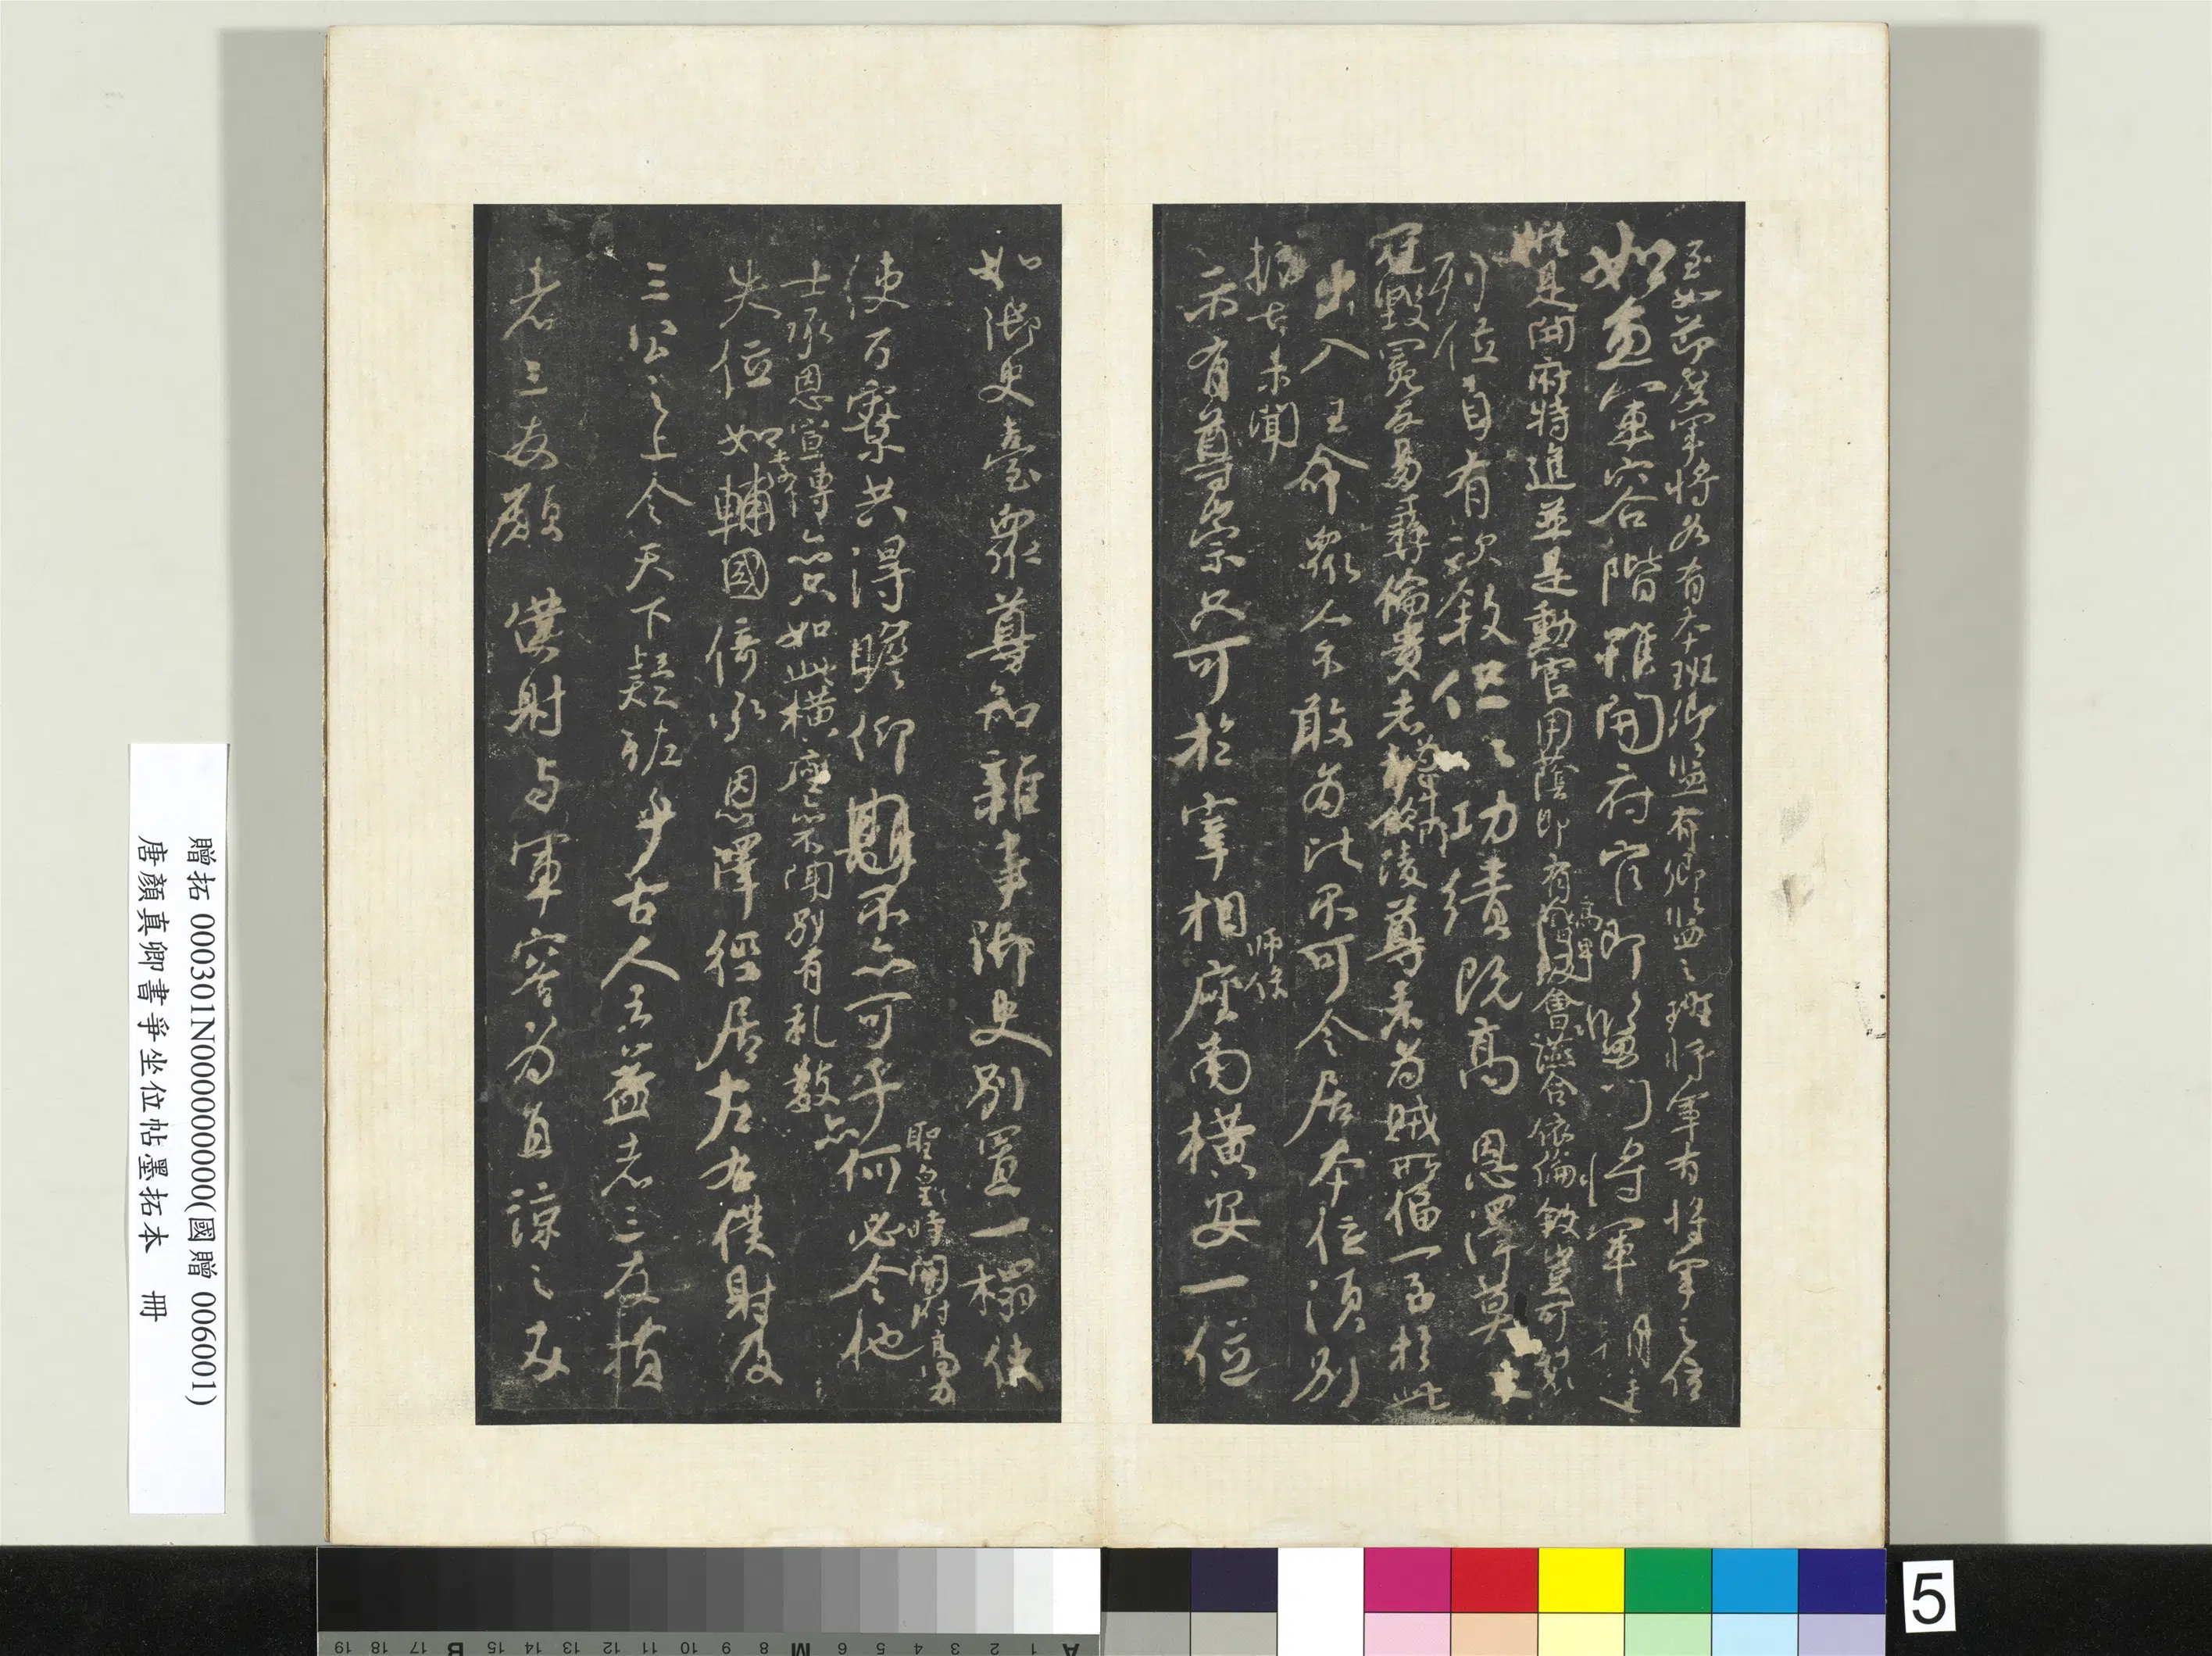 至如節度軍將各有本班卿監有卿監之班將軍有將軍之位
如魚軍容階雖開府官即監門將軍朝廷
縱是開府特進並是勳官用蔭即有高卑會讌合依倫敘豈可裂
列位自有次敘但以功績既高恩澤莫大
冠毀冕反易彝倫貴者為卑所凌尊者為賊所偪一至於此
出入王命衆人不敢為比不可令居本位須別
振古未聞
示有尊崇只可於宰相師保座南橫安一位
如御史臺衆尊知雜事御史別置一榻使
使百寮共得瞻仰不亦可乎何必令他
聖皇時開府高力
士承恩宣傳亦只如此橫座亦不聞別有礼數亦
失位如李輔國倚承恩澤徑居左右僕射及
三公之上令天下疑怪乎古人云益者三友損
者三友願僕射與軍容為直諒之友
贈拓 000301N000000000(國贈 006001)
唐顏真卿書爭坐位帖墨拓本 冊
19 18 17 B 15 14 13 12 11 10 9 8 M 6 5 4 3 2 1 A
5